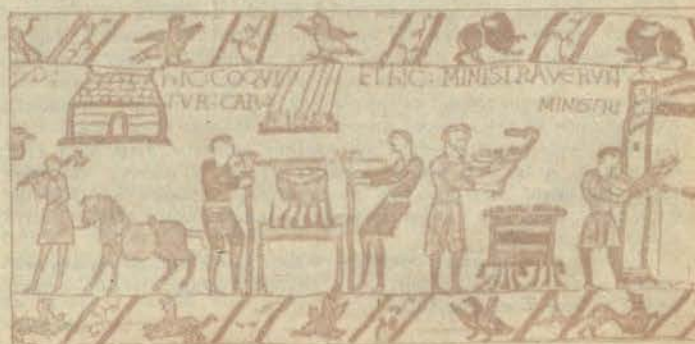 D: HIC: COQVI
TVR: CARO
ET HIC: MINISTRAVERVN
MINISTRI